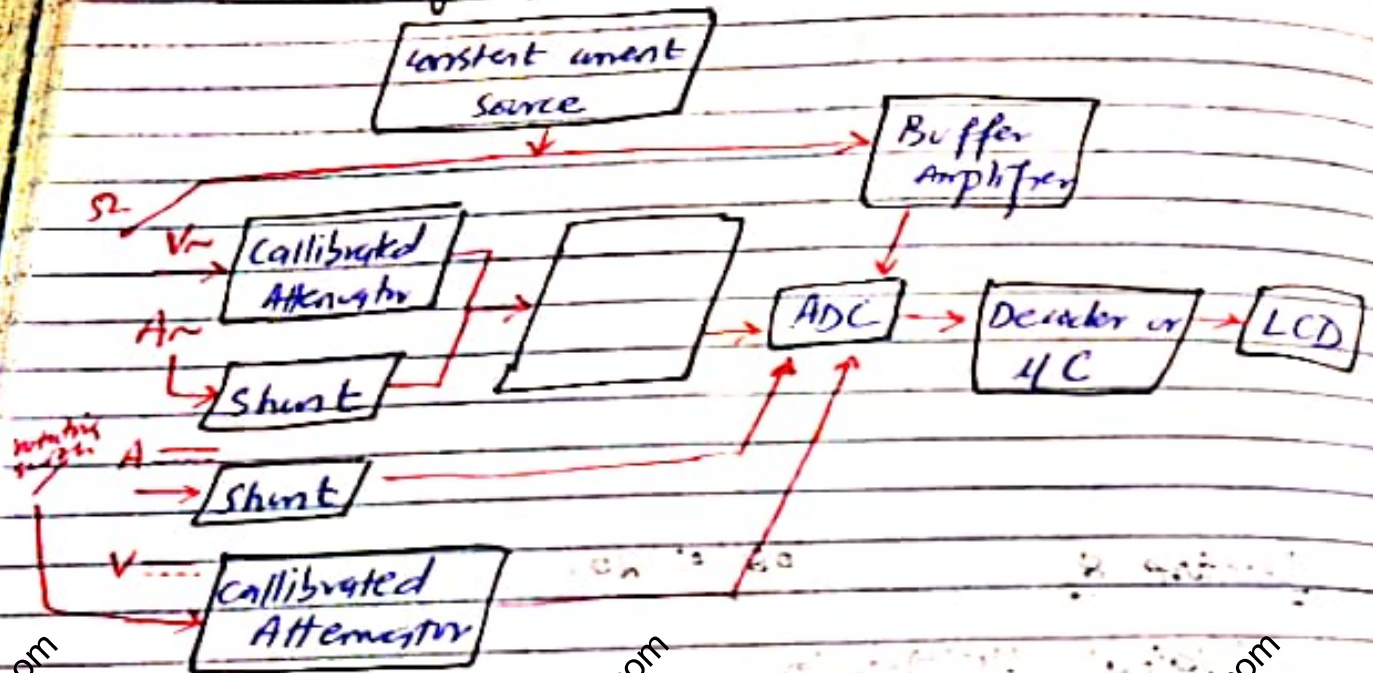 constent current
source
Buffer
Amplifier
Ω
V~
Callibrated
Attenuator
A~
Shunt
ADC
Decoder or
μC
LCD
A
Shunt
V
Callibrated
Attenuator
om
com
com